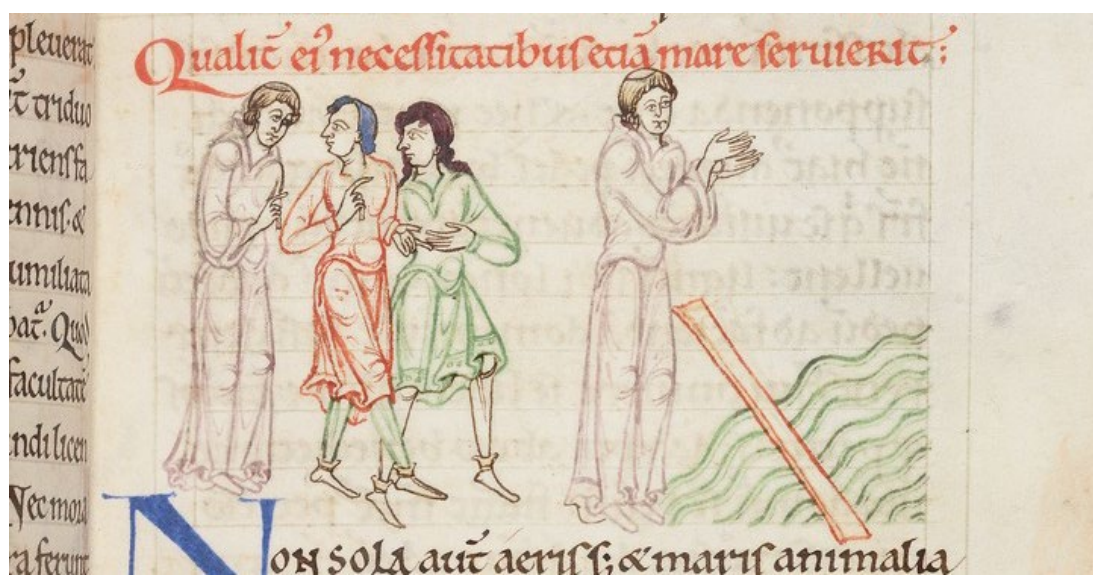 pleuerat
t triduo
eriens fa
ennis. &
umiliata
pat. Quod
facultate
ndi licen
Nec mora
ra ferunt
Qualit̄ ei᾽ necessitatibus etiā mare seruierit:
NON SOLA aut̄ aeris s; & maris animalia